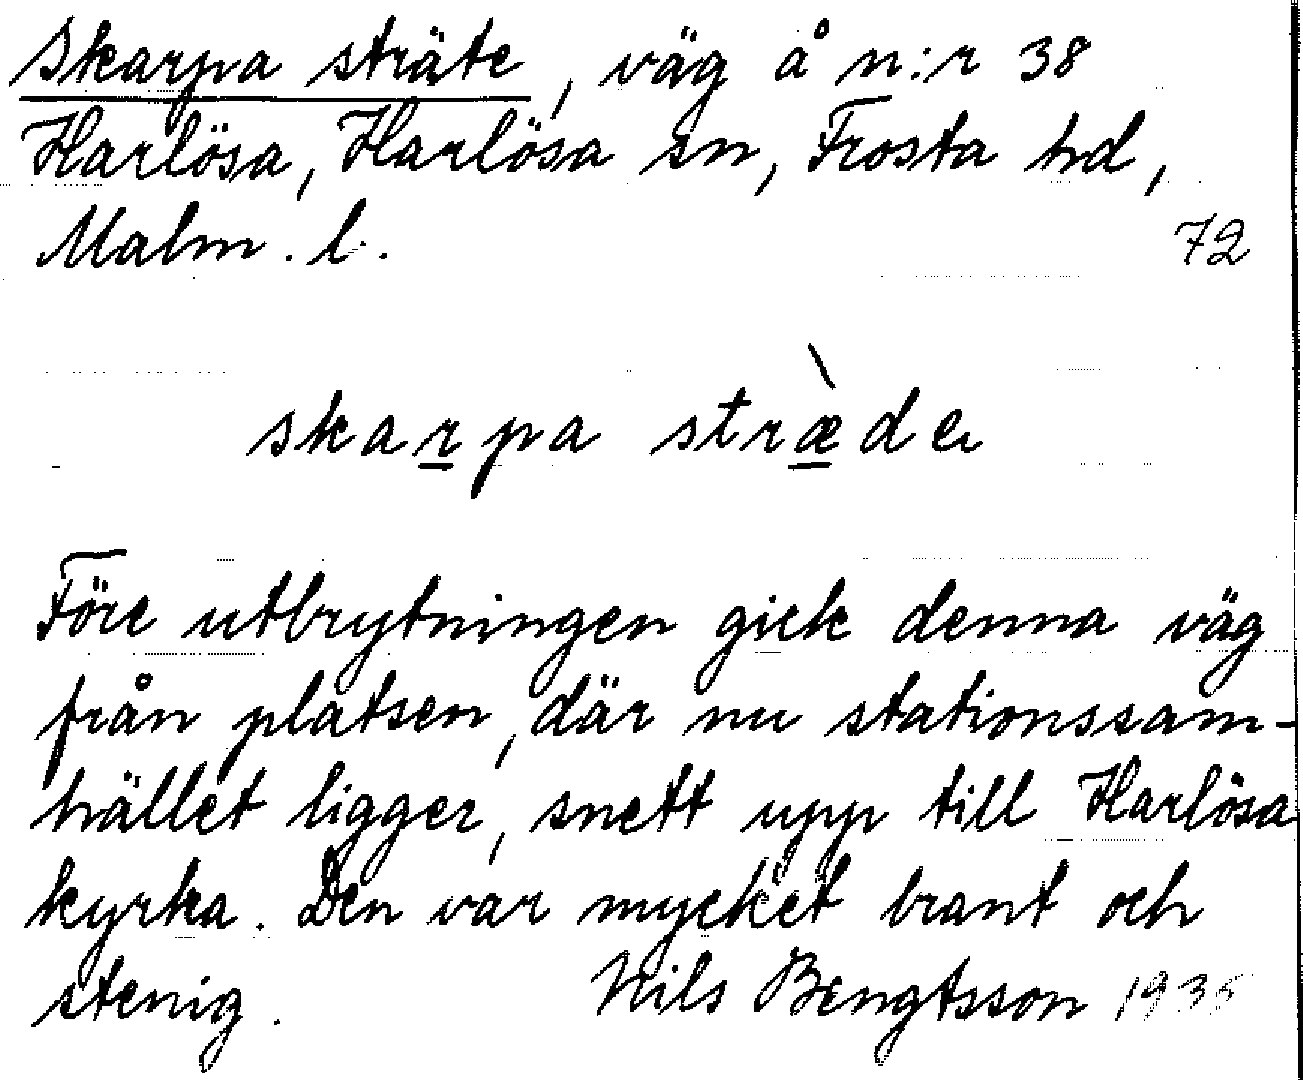 Skarpa sträte, väg å n:r 38
Harlösa, Harlösa sn, Frosta hd,
Malm. l.
72
skarpa stræ̀de
Före utbrytningen gick denna väg
från platsen, där nu stationssam-
hället ligger, snett upp till Harlösa
kyrka. Den var mycket brant och
stenig. Nils Bengtsson 1935